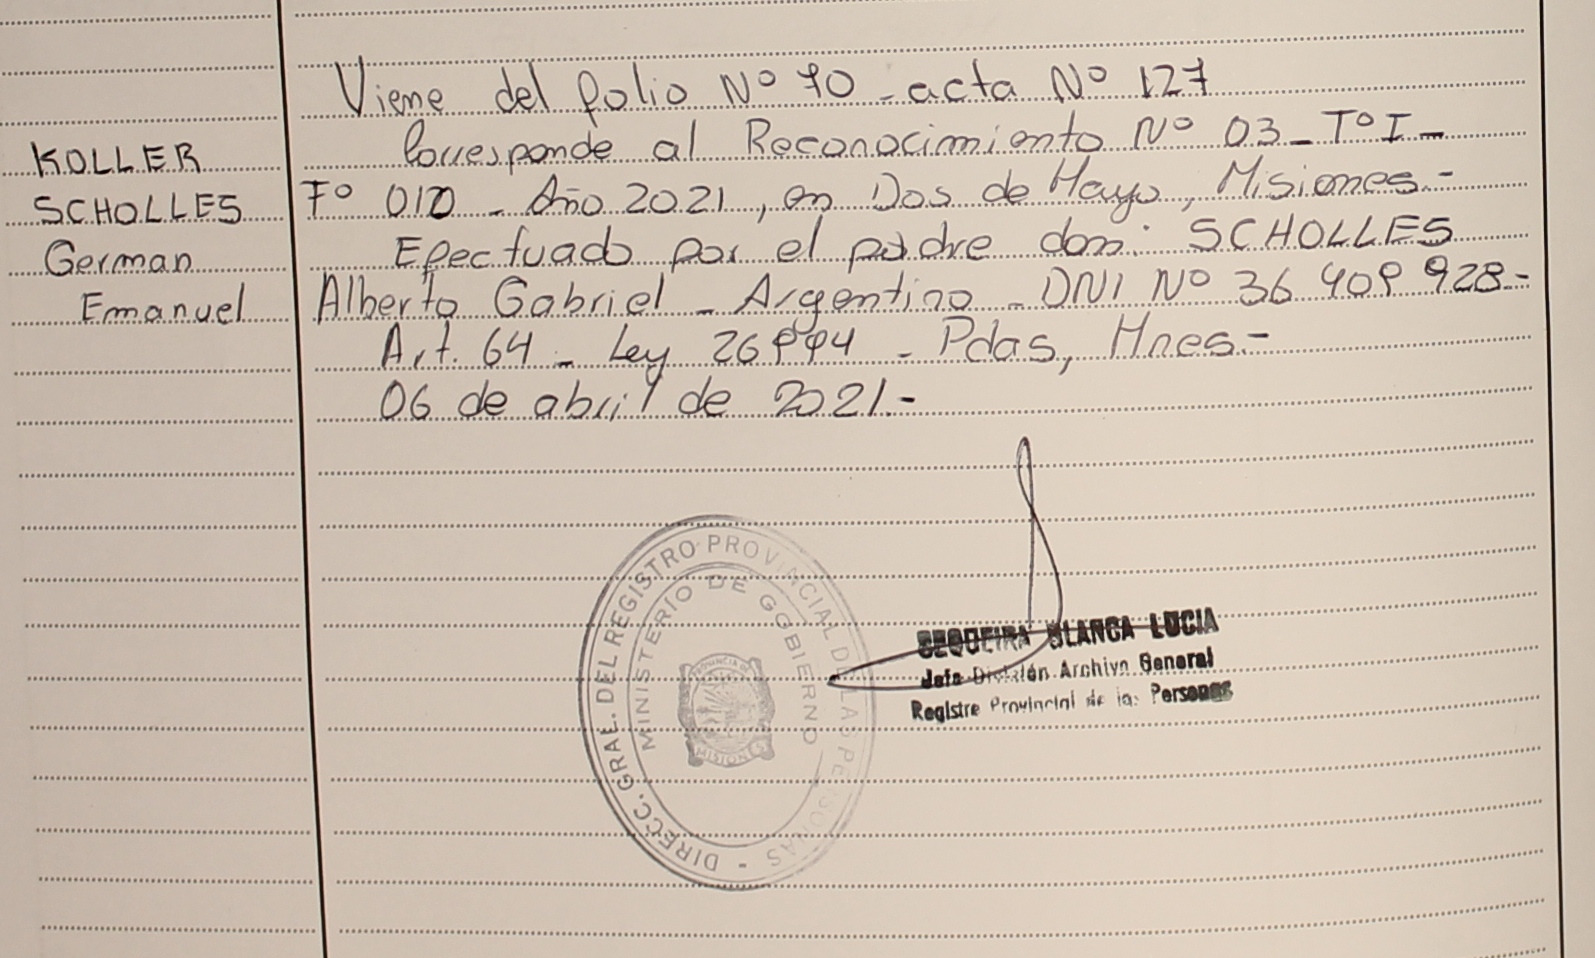 Viene del folio Nº 70 - acta Nº 127
Corresponde al Reconocimiento Nº 03 - Tº I -
KOLLER
SCHOLLES
German
Emanuel
Fº 010 - Año 2021, en Dos de Mayo, Misiones.-
Efectuado por el padre don: SCHOLLES
Alberto Gabriel - Argentino - DNI Nº 36 409 928-
Art. 64 - Ley 26994 - Pdas, Mnes.-
06 de abril de 2021.-
DIRECC. GRAL. DEL REGISTRO PROVINCIAL DE LAS PERSONAS -
MINISTERIO DE GOBIERNO
PROVINCIA DE
MISIONES
SEQUEIRA BLANCA LUCIA
Jefa División Archivo General
Registro Provincial de las Personas